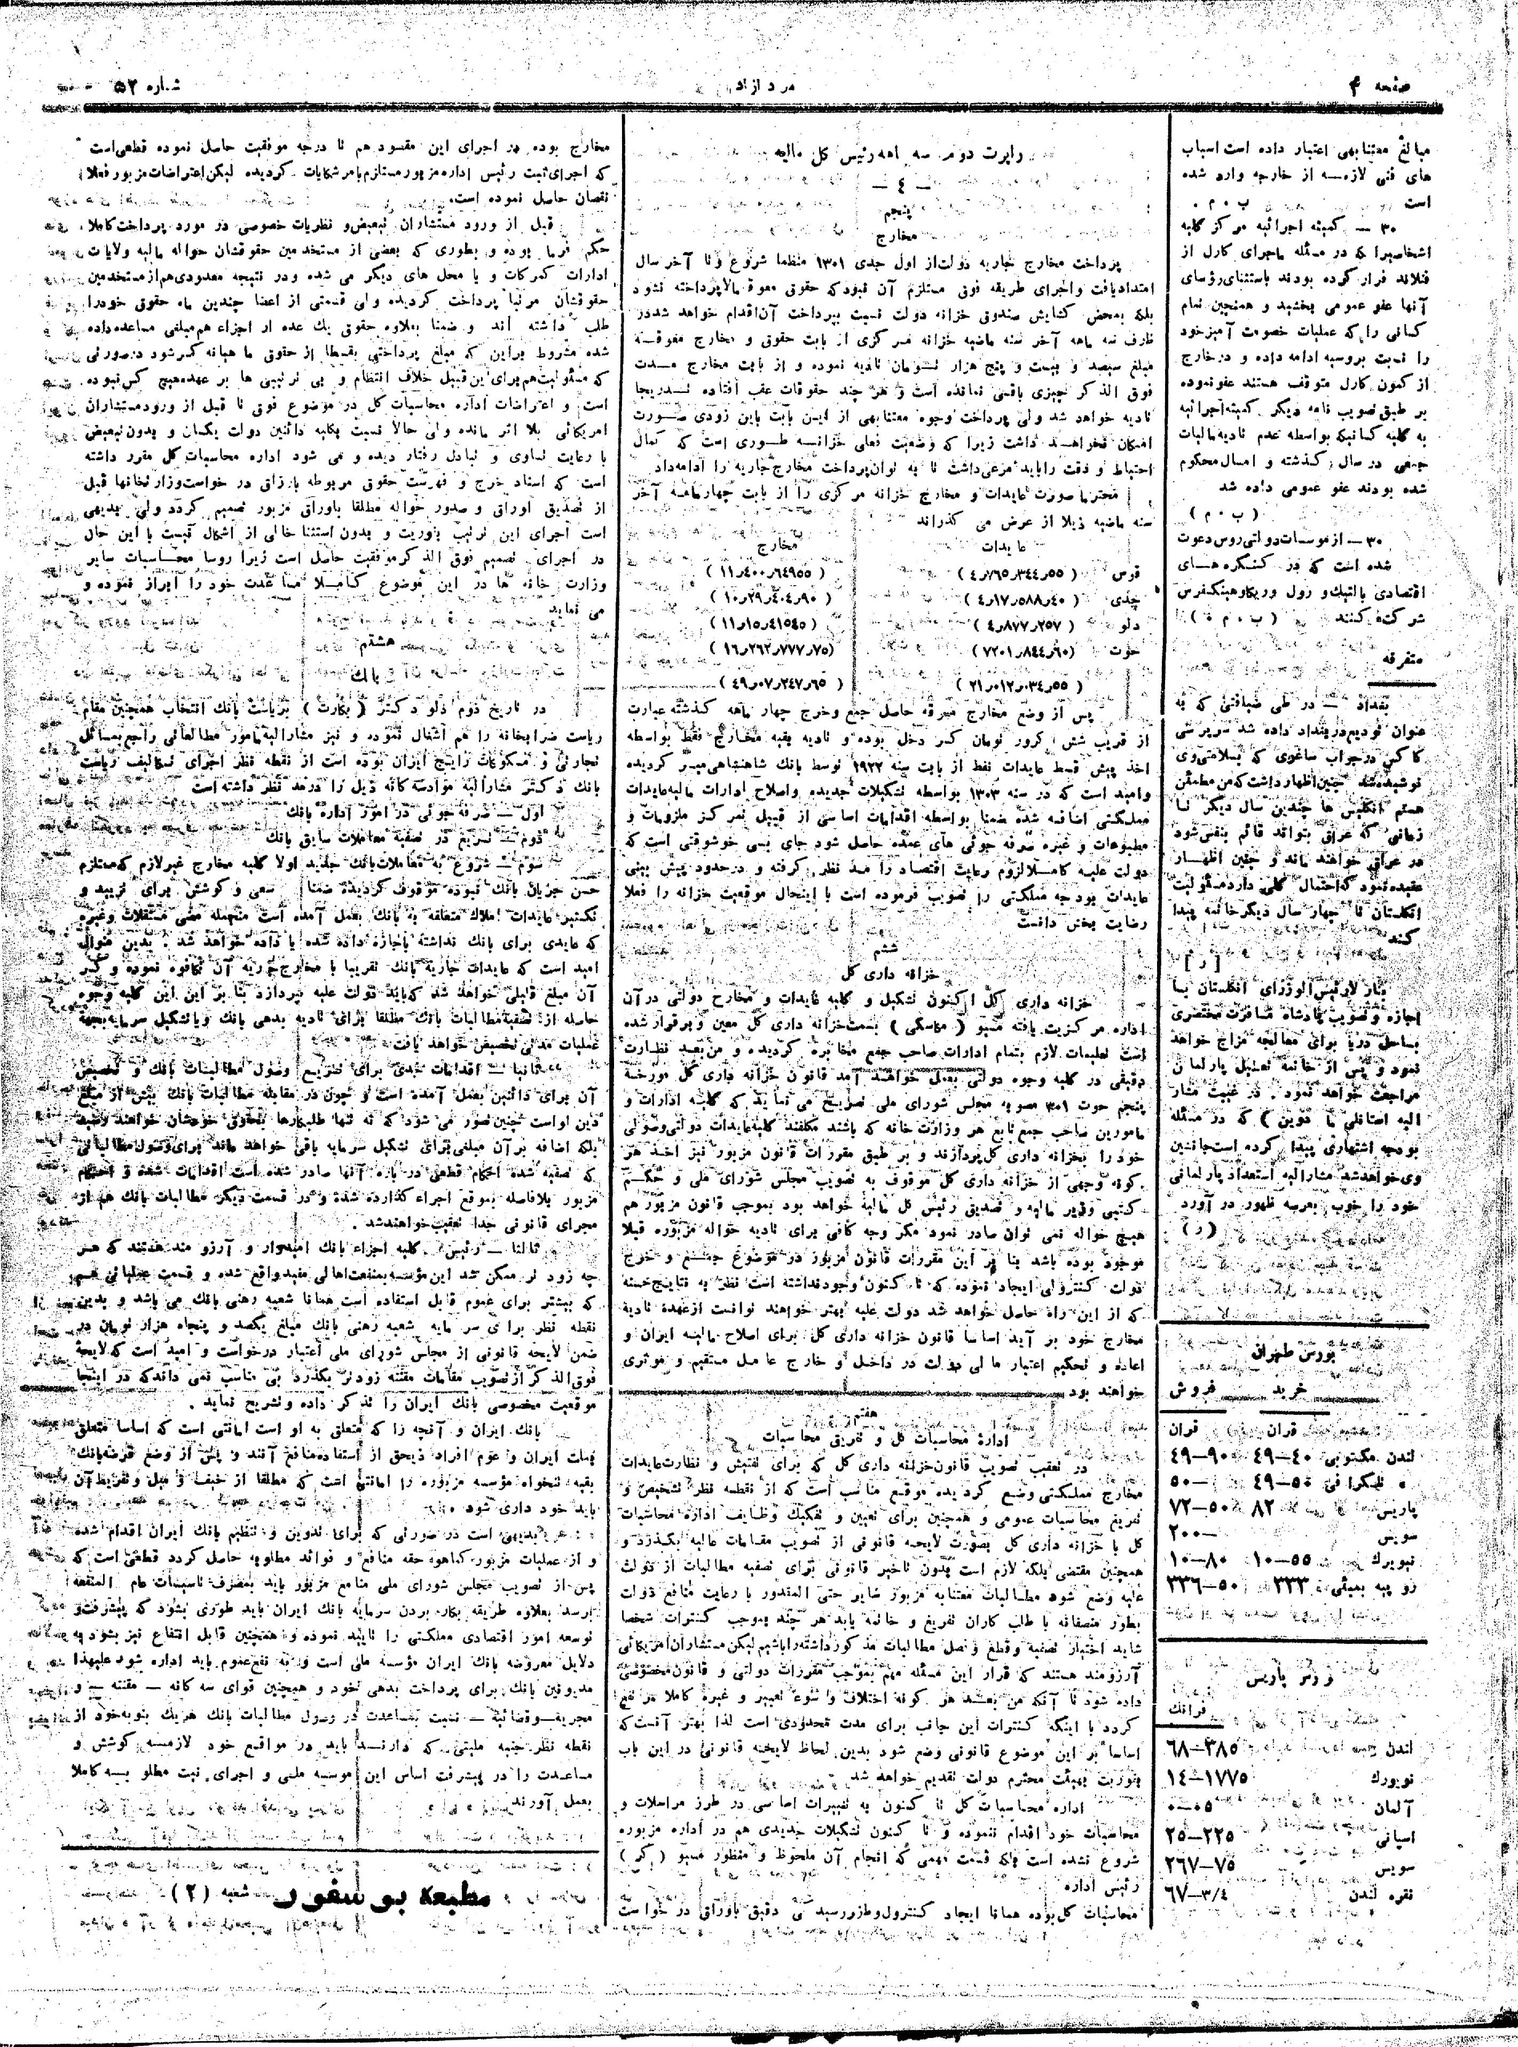 صفحه ۴
مرد ازاد
شماره ۵۲
مبالغ معتنابهی اعتبار داده است اسباب
های فنی لازمه از خارجه وارد شده
است ب . م .
۳۰ — کمیته اجرائیه مرکز کلیه
اشخاصیرا که در مسئله ماجرای کارل از
فنلاند فرار کرده بودند باستثنای رؤسای
آنها عفو عمومی بخشید و همچنین تمام
کسانی را که عملیات خصومت آمیز خود
را نسبت بروسیه ادامه داده و در خارج
از کمون کارل متوقف هستند عفو نموده
بر طبق تصویب نامه دیگر کمیته اجرائیه
به کلیه کسانیکه بواسطه عدم تادیه مالیات
جنسی در سال گذشته و امسال محکوم
شده بودند عفو عمومی داده شد
( ب . م )
۳۰ — از موسسات دولتی روس دعوت
شده است که در کنگره های
اقتصادی بالتیک و رول وریکا و هینکفرس
شرکت کنند ( ب . م )
متفرقه
بغداد — در طی ضیافتی که به
عنوان تودیع در بغداد داده شد سر پرسی
کاکس در جواب ساغری که بسلامتی وی
نوشیده شد چنین اظهار داشت که من مطمئن
هستم انگلیس ها چندین سال دیگر تا
زمانی که عراق بتواند قائم بنفس شود
در عراق خواهند ماند و چنین اظهار
عقیده نمود که احتمال کلی دارد مسئولیت
انگلستان تا چهار سال دیگر خاتمه پیدا
کند
[ ر ]
بنار لا رئیس الوزرای انگلستان با
اجازه و تصویب پادشاه مسافرت مختصری
بساحل دریا برای معالجه مزاج خواهد
نمود و پس از خاتمه تعطیل پارلمان
مراجعت خواهد نمود . در غیبت مشار
الیه استانلی با لدوین ) که در مسئله
بودجه اشتهاری پیدا کرده است جانشین
وی خواهد شد مشارالیه استعداد پارلمانی
خود را خوب بعرصه ظهور در آورد
( ر )
بورس طهران
خرید فروش
قران قران
لندن مکتوبی ۴۰—۴۹ ۹۰—۴۹
» تلگرافی ۵۰—۴۹ —۵۰
پاریس ۸۲ ۵۰—۷۲
سویس —۲۰۰
نیویرک ۵۵—۱۰ ۸۰—۱۰
روپیه بمبئی ۳۳۳ ۵۰—۳۳۶
ورس پاریس
فرانک
لندن ۳۸۵—۶۸
نویورک ۱۷۷۵—۱۴
آلمان ۰۵—۰
اسپانی ۲۲۵—۲۵
سویس ۷۵—۲۶۷
نقره لندن ۳/۴—۶۷
راپرت دوم سه ماهه رئیس کل مالیه
— ٤ —
پنجم
مخارج
پرداخت مخارج جاریه دولت از اول جدی ۱۳۰۱ منظما شروع و تا آخر سال
امتداد یافت و اجرای طریقه فوق مستلزم آن نبود که حقوق معوقه مالا پرداخته نشود
بلکه بمحض گشایش صندوق خزانه دولت نسبت بپرداخت آن اقدام خواهد شد در
ظرف سه ماهه آخر سنه ماضیه خزانه مرکزی از بابت حقوق و مخارج معوقه
مبلغ سیصد و بیست و پنج هزار تومان تادیه نموده و از بابت مخارج مدت
فوق الذکر چیزی باقی نمانده است و هر چند حقوقات عقب افتاده تدریجا
تادیه خواهد شد ولی پرداخت وجوه معتنابهی از این بابت باین زودی صورت
امکان نخواهد داشت زیرا که وضعیت فعلی خزانه طوری است که کمال
احتیاط و دقت را باید مرعی داشت تا به توان پرداخت مخارج جاریه را ادامه داد
محترما صورت عایدات و مخارج خزانه مرکزی را از بابت چهار ماهه آخر
سنه ماضیه ذیلا از عرض می گذراند
عایدات مخارج
قوس ( ۵۵ر۳۴۴ر۷۶۵ر۴ ) ( ۶۴۹۵۵ر۴۰۰ر۱۱ )
جدی ( ۴۰ر۵۸۸ر۱۷ر۴ ) ( ۹۰ر۴۰۴ر۲۹ر۱۰ )
دلو ( ۲۵۷ر۸۷۷ر۴ ) ( ۴۱۵۴۵ر۱۵ر۱۱ )
حوت ( ۶۰ر۸۴۴ر۷۲۰۱ ) ( ۷۵ر۷۷۷ر۲۶۲ر۱۶ )
( ۵۵ر۰۳۴ر۰۱۲ر۲۱ ) ( ۶۵ر۲۴۷ر۰۷ر۴۹ )
پس از وضع مخارج مبرقه حاصل جمع و خرج چهار ماهه گذشته عبارت
از قریب شش کرور تومان کسر دخل بوده و تادیه بقیه مخارج فقط بواسطه
اخذ پیش قسط عایدات نفط از بابت سنه ۱۹۲۲ توسط بانک شاهنشاهی میسر گردیده
و امید است که در سنه ۱۳۰۳ بواسطه تشکیلات جدیده و اصلاح ادارات مالیه عایدات
مملکتی اضافه شده ضمنا بواسطه اقدامات اساسی از قبیل تمرکز ملزومات و
مطبوعات و غیره صرفه جوئی های عمده حاصل شود جای بسی خوشوقتی است که
دولت علیه کاملا لزوم رعایت اقتصاد را مد نظر گرفته و در حدود پیش بینی
عایدات بودجه مملکتی را تصویب فرموده است با اینحال موقعیت خزانه را فعلا
رضایت بخش دانست
ششم
خزانه داری کل
خزانه داری کل اکنون تشکیل و کلیه عایدات و مخارج دولتی در آن
اداره مرکزیت یافته مسیو ( مکاسکی ) بسمت خزانه داری کل معین و برقرار شده
است تعلیمات لازم بتمام ادارات صاحب جمع مخابره گردیده و من بعد نظارت
دقیقی در کلیه وجوه دولتی بعمل خواهد آمد قانون خزانه داری کل مورخه
پنجم حوت ۱۳۰۱ مصوبه مجلس شورای ملی تصریح می نماید که کلیه ادارات و
مامورین صاحب جمع تابع هر وزارت خانه که باشند مکلفند کلیه عایدات دولتی وصولی
خود را بخزانه داری کل پردازند و بر طبق مقررات قانون مزبور نیز اخذ هر
گونه وجهی از خزانه داری کل موقوف به تصویب مجلس شورای ملی و حکم
کتبی وزیر مالیه و تصدیق رئیس کل مالیه خواهد بود بموجب قانون مزبور هم
هیچ حواله نمی توان صادر نمود مگر وجه کافی برای تادیه حواله مزبوره قبلا
موجود بوده باشد بنا بر این مقررات قانون مزبور در موضوع جمع و خرج
دولت کنترولی ایجاد نموده که تا کنون وجود نداشته است نظر به نتایج حسنه
که از این راه حاصل خواهد شد دولت علیه بهتر خواهند توانست از عهده تادیه
مخارج خود بر آید اساسا قانون خزانه داری کل برای اصلاح مالیه ایران و
اعاده و تحکیم اعتبار مالی دولت در داخل و خارج عامل مستقیم و موثری
خواهند بود
هفتم
اداره محاسبات کل و تفریق محاسبات
در تعقیب تصویب قانون خزانه داری کل که برای تفتیش و نظارت عایدات
مخارج مملکتی وضع گردیده موقع مناسب است که از نقطه نظر تشخیص و
تفریغ محاسبات عمومی و همچنین برای تعیین و تفکیک وظایف اداره محاسبات
کل با خزانه داری کل بصورت لایحه قانونی از تصویب مقامات عالیه بگذرد و
همچنین مقتضی بلکه لازم است بدون تاخیر قانونی برای تصفیه مطالبات از دولت
علیه وضع شود مطالبات معتنابه مزبور شایر حتی المقدور با رعایت منافع دولت
بطور منصفانه با طلب کاران تفریغ و خاتمه یابد هر چند بموجب کنترات شخصا
شاید اختیار تصفیه و قطع و فصل مطالبات مذکور داشته را باشیم لیکن مستشاران امریکائی
آرزومند هستند که قرار این مسئله مهم بموجب مقررات دولتی و قانون مخصوصی
داده شود تا آنکه من بعد هر گونه اختلاف و سوء تعبیر و غیره کاملا مرتفع
گردد با اینکه کنترات این جانب برای مدت محدودی است لذا بهتر آنست که
اساسا بر این موضوع قانونی وضع شود بدین لحاظ لایحته قانونی در این باب
بتوزیت بهیئت محترم دولت تقدیم خواهد شد
اداره محاسبات کل تا کنون به تغییرات اساسی در طرز مراسلات و
محاسبات خود اقدام ننموده و تا کنون تشکیلات جدیدی هم در اداره مزبوره
شروع نشده است بلکه قسمت مهمی که انجام آن ملحوظ و منظور مسیو ( کر )
رئیس اداره
محاسبات کل بوده همانا ایجاد کنترول و طرز رسیدگی دقیق باوراق در خواست
مخارج بوده در اجرای این مقصود هم تا درجه موفقیت حاصل نموده قطعی است
که اجرای نیت رئیس اداره مزبور مستلزم بامر شکایات گردیده لیکن اعتراضات مزبور فعلا
نقصان حاصل نموده است
قبل از ورود مستشاران تبعیض و نظریات خصوصی در مورد پرداخت کاملا
حکم فرما بوده و بطوری که بعضی از مستخدمین حقوقشان حواله مالیه ولایات
ادارات گمرکات و یا محل های دیگر می شده و در نتیجه معدودی هم از مستخدمین
حقوقشان مرتبا پرداخت گردیده ولی قسمتی از اعضا چندین ماه حقوق خود را
طلب داشته اند و ضمنا بعلاوه حقوق یک عده از اجزاء هم مبلغی مساعده داده
شده مشروط براین که مبلغ پرداختی بقسط از حقوق ماهیانه کسر شود در صورتی
که مسئولیت هم برای این قبیل خلاف انتظام و بی ترتیبی ها بر عهده هیچ کس نبوده
است و اعتراضات اداره محاسبات کل در موضوع فوق تا قبل از ورود مستشاران
امریکائی بلا اثر مانده ولی حالا نسبت بکلیه دائنین دولت یکسان و بدون تبعیض
با رعایت تساوی و تبادل رفتار دیده و می شود اداره محاسبات کل مقرر داشته
است که اسناد خرج و فهرست حقوق مربوطه باوراق در خواست وزارتخانها قبل
از تصدیق اوراق و صدور حواله مطلقا باوراق مزبور تصمیم گردد ولی بدیهی
است اجرای این ترتیب بفوریت و بدون استثنا خالی از اشکال نیست با این حال
در اجرای تصمیم فوق الذکر موفقیت حاصل است زیرا روسا محاسبات سایر
وزارت خانه ها در این موضوع کاملا مساعدت خود را ابراز نموده و
می نماید
هشتم
در تاریخ دوم دلو دکتر ( بگارت ) بریاست بانک انتخاب همچنین مقام
ریاست ضرابخانه را هم اشغال نموده و نیز مشارالیه مامور مطالعاتی راجع بمسائل
تجارتی و مسکوکات رایج ایران بوده است از نقطه نظر اجرای تکالیف ریاست
بانک دکتر مشارالیه موادسه گانه ذیل را در مد نظر داشته است
اول — صرفه جوئی در امور اداره بانک
دوم — تسریع در تصفیه معاملات سابق بانک
سوم — شروع به معاملات بانک جدید اولا کلیه مخارج غیر لازم که مستلزم
حسن جریان بانک نبوده موقوف گردیده ضمنا سعی و کوشش برای تزیید و
تکثیر عایدات املاک متعلقه به بانک بعمل آمده است منجمله بعضی مستقلات و غیره
که عایدی برای بانک نداشته باجازه داده شده یا داده خواهد شد . بدین منوال
امید است که عایدات جاریه بانک تقریبا با مخارج جاریه آن تکافوه نموده و کسر
آن مبلغ قابلی خواهد شد که باید دولت علیه بپردازد بنا بر این این کلیه وجوه
حاصله از تصفیه مطالبات بانک مطلقا برای تادیه بدهی بانک و یا تشکیل سرمایه بجهة
عملیات مدنی تخصیص خواهد یافت
ثانیا — اقدامات جدی برای تسریع وصول مطالبات بانک و تخصیص
آن برای دائنین بعمل آمده است و چون در مقابله مطالبات بانک بیش از مبلغ
دین اوست چنین تصور می شود که نه تنها طلبکارها بحقوق خودشان خواهند رسید
بلکه اضافه بر آن مبلغی برای تشکیل سرمایه باقی خواهد ماند برای وصول مطالباتی
که تصفیه شده احکام قطعی در باره آنها صادر شده است اقدامات شده و احکام
مزبور بلافاصله بموقع اجراء گذارده شده و در قسمت دیگر مطالبات بانک هم از
مجرای قانونی جدا تعقیب خواهند شد .
ثالثا — رئیس . کلیه اجزاء بانک امیدوار و آرزو مند هستند که هر
چه زود تر ممکن شد این مؤسسه بمنفعت اهالی مفید واقع شده و قسمت عملیاتی هم
که بیشتر برای عموم قابل استفاده است همانا شعبه رهنی بانک می باشد و بدین
نقطه نظر برای سر مایه شعبه رهنی بانک مبلغ یکصد و پنجاه هزار تومان در
ضمن لایحه قانونی از مجلس شورای ملی اعتبار درخواست و امید است که لایحه
فوق الذکر از تصویب مقامات مقننه زودتر بگذرد بی مناسب نمی داند که در اینجا
موقعیت مخصوصی بانک ایران را تذکر داده و تشریح نماید .
بانک ایران و آنچه را که متعلق به او است امانتی است که اساسا متعلق
بملت ایران و عوم افراد ذیحق از استفاده منافع آنند و پس از وضع قرضه بانک
بقیه تنخواه مؤسسه مزبوره را امانتی است که مطلقا از حیف و میل و تفریط آن
باید خود داری شود
بدیهی است در صورتی که برای تدوین و تنظیم بانک ایران اقدام شده
و از عملیات مزبور کماهو حقه منافع و فوائد مطلوبه حاصل گردد قطعی است که
پس از تصویب مجلس شورای ملی منافع مزبور باید بمصرف تاسیسات عام المنفعه
برسد بعلاوه طریقه بکار بردن سرمایه بانک ایران باید طوری بشود که پیشرفت و
توسعه امور اقتصادی مملکتی را تایید نموده و همچنین قابل انتفاع نیز بشود به
دلایل معروضه بانک ایران مؤسسه ملی است و به نفع عموم باید اداره شود علیهذا
مدیونین بانک برای پرداخت بدهی خود و همچنین قوای سه گانه — مقننه — و
مجریه — و قضائیه — نسبت بمساعدت در وصول مطالبات بانک هریک بنوبه خود از
نقطه نظر جنبه ملیتی که دارند باید در مواقع خود لازمه کوشش و
مساعدت را در پیشرفت اساس این موسسه ملی و اجرای نیت مطلوبه کاملا
بعمل آورند
مطبعه بوسفور شعبه (۲)